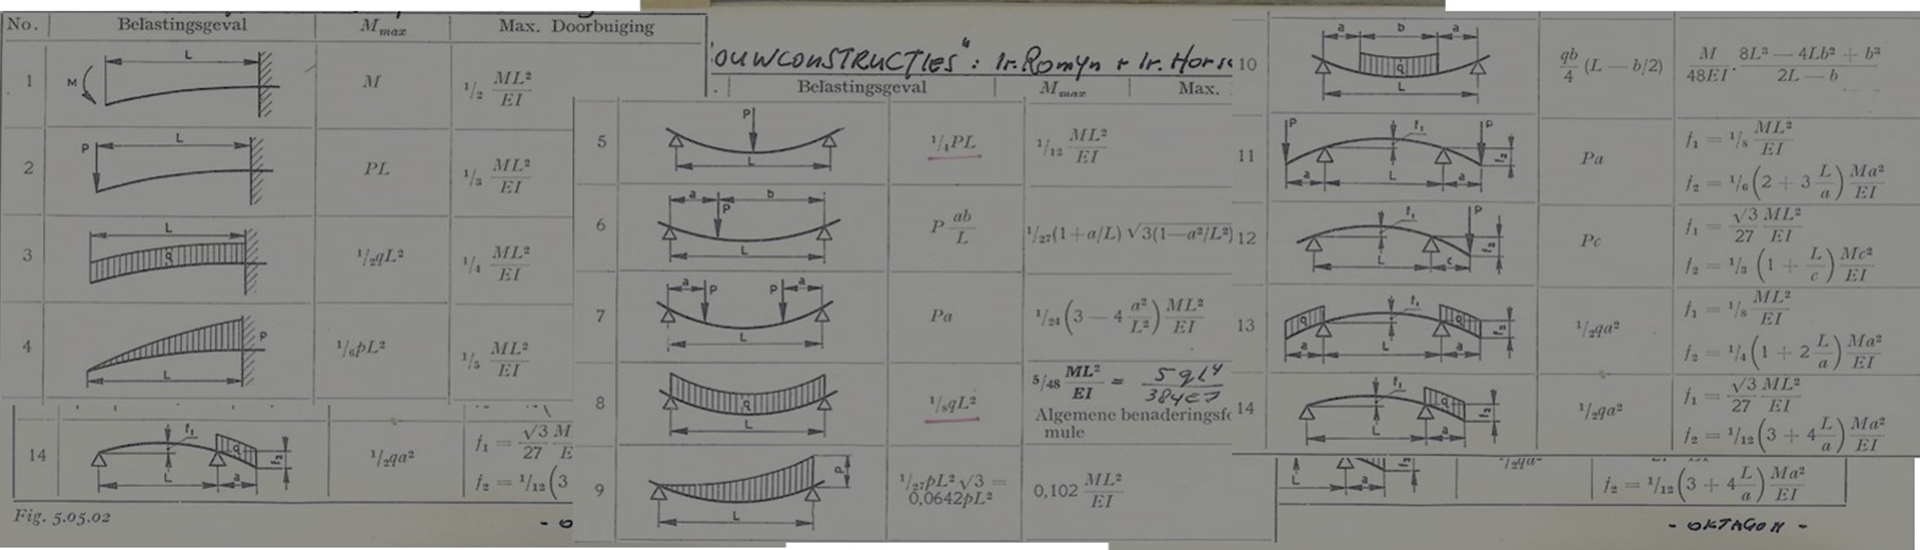 No. Belastingsgeval Mmax Max. Doorbuiging
1 M L M 1/2 ML²/EI
2 P L PL 1/3 ML²/EI
3 L q 1/2qL² 1/4 ML²/EI
4 P L 1/6pL² 1/5 ML²/EI
14 f₁ q f₂ L a 1/2qa² f₁ = √3 M/27 E
f₂ = 1/12(3
Fig. 5.05.02
OUWCONSTRUCTIES": Ir. Romyn + Ir. Hors
Belastingsgeval Mmax Max.
5 P L 1/4PL 1/12 ML²/EI
6 a b P L P ab/L 1/27(1+a/L) √3(1—a²/L²)
7 a P P a L Pa 1/24(3 — 4 a²/L²) ML²/EI
8 q L 1/8qL² 5/48 ML²/EI = 5qL⁴/384EI
Algemene benaderingsfo
mule
9 P L 1/27pL²√3 =
0,0642pL² 0,102 ML²/EI
10 a b a q L qb/4 (L — b/2) M/48EI · 8L³ — 4Lb² + b³/2L — b
11 P f₁ P f₂ a L a Pa f₁ = 1/8 ML²/EI
f₂ = 1/6(2 + 3 L/a) Ma²/EI
12 f₁ P f₂ L c Pc f₁ = √3 ML²/27 EI
f₂ = 1/3 (1 + L/c) Mc²/EI
13 q f₁ q f₂ a L a 1/2qa² f₁ = 1/8 ML²/EI
f₂ = 1/4(1 + 2 L/a) Ma²/EI
14 f₁ q f₂ L a 1/2qa² f₁ = √3 ML²/27 EI
f₂ = 1/12(3 + 4 L/a) Ma²/EI
L a f₂ 1/2qa² f₂ = 1/12(3 + 4 L/a) Ma²/EI
- OKTAGON -